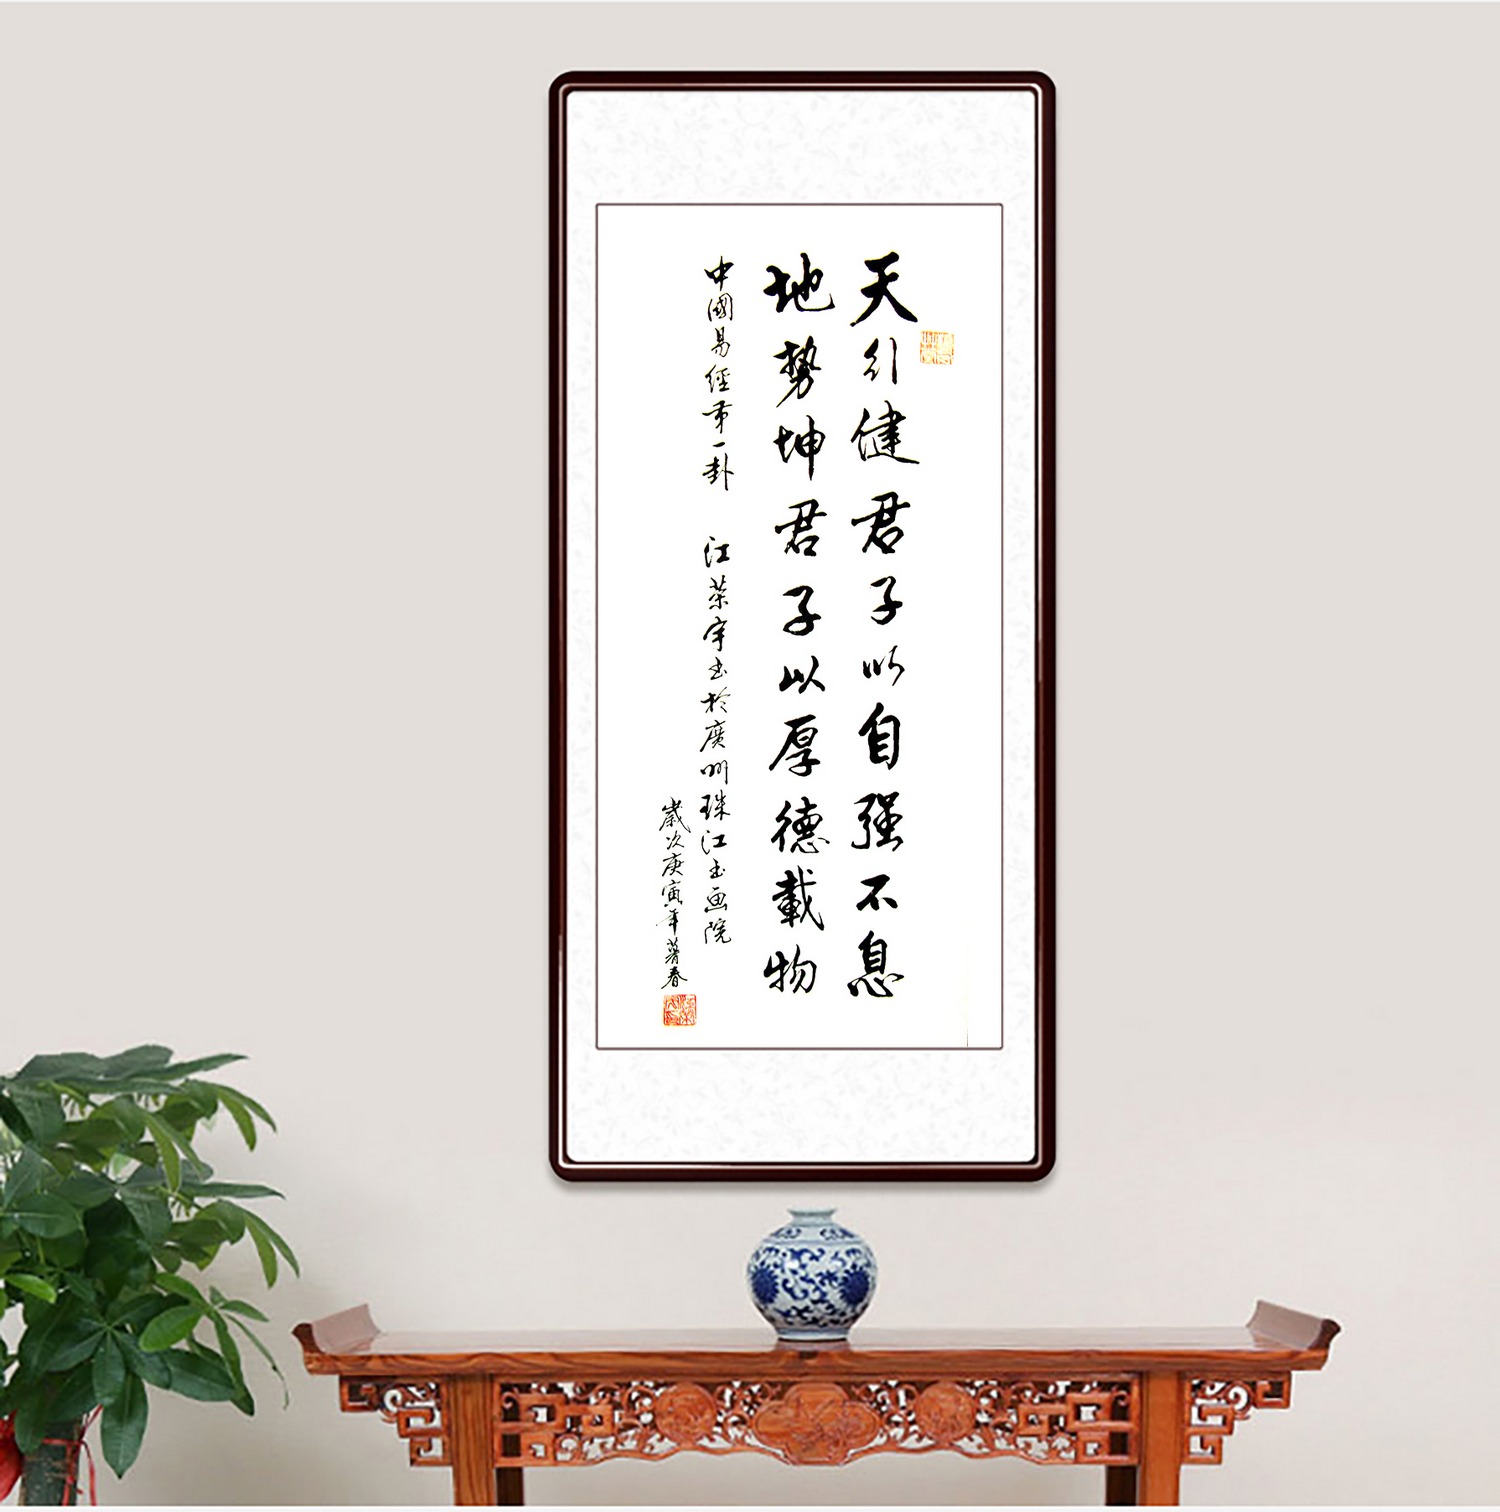 天行健君子以自强不息
地势坤君子以厚德載物
中國易經第一卦 江荣宇书於廣州珠江书画院
歲次庚寅年暮春